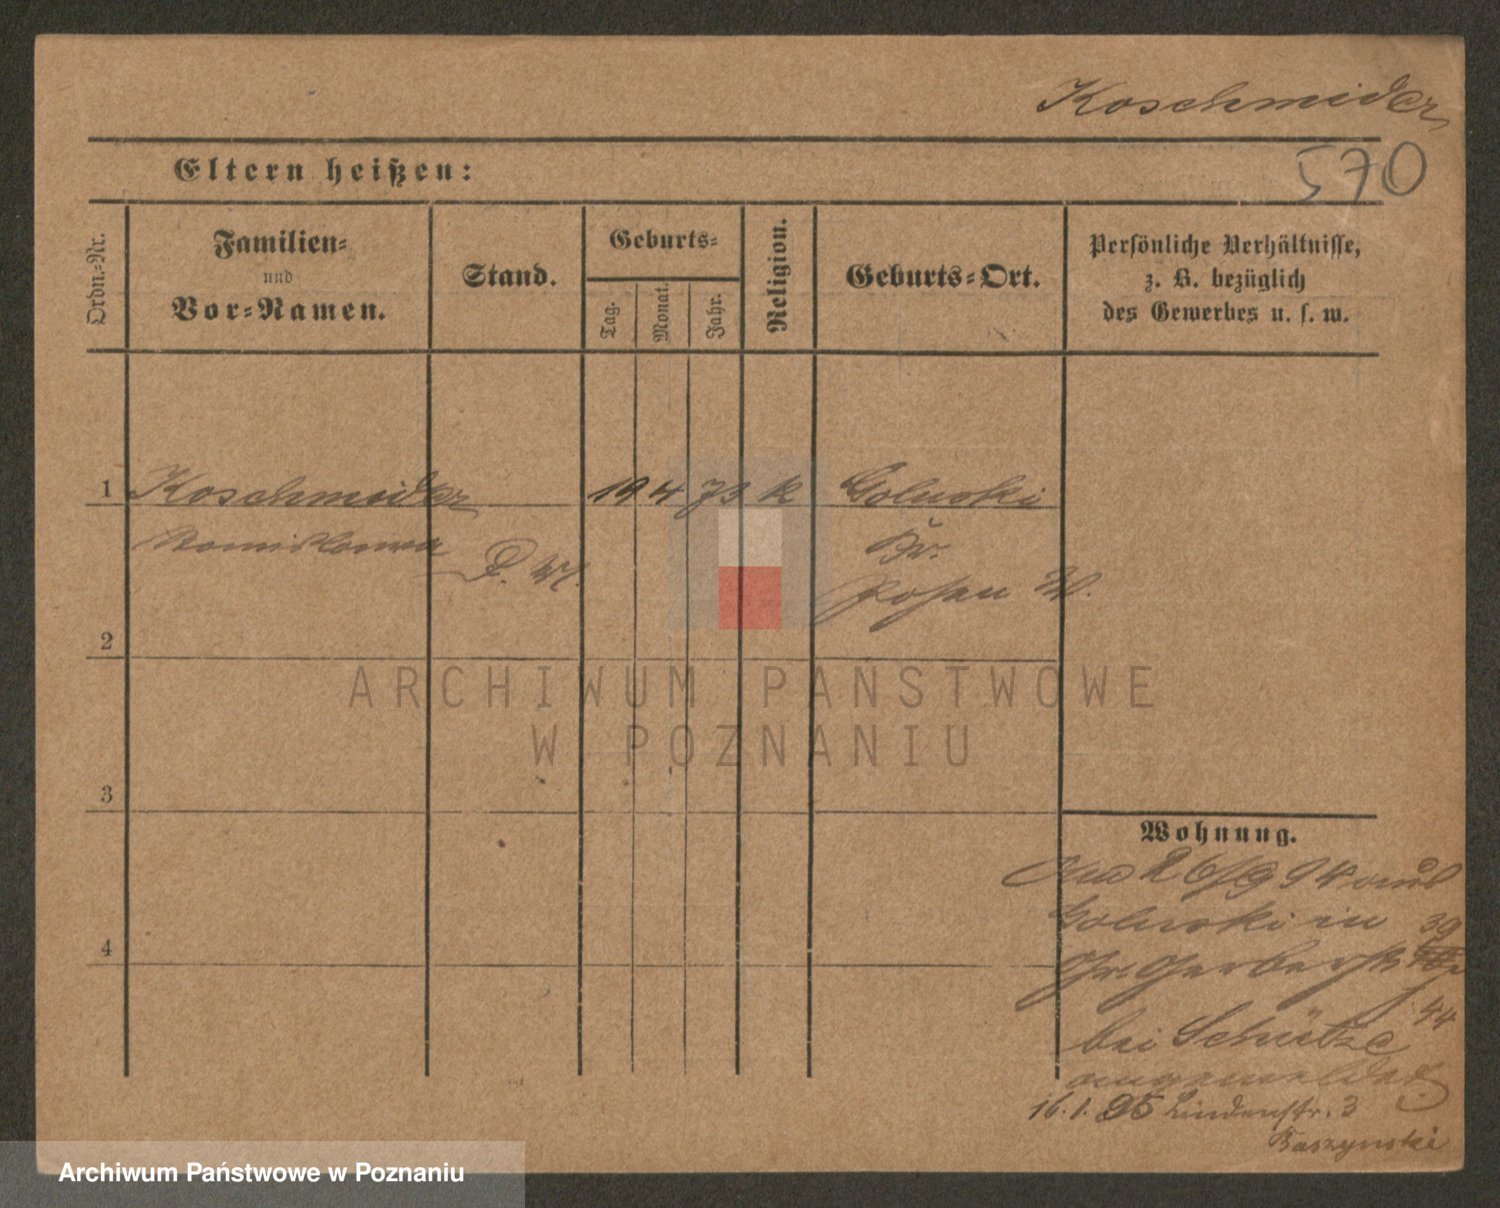 Koschmider
570
Eltern heißen:
Ordn.-Nr.
Familien-
und
Vor-Namen.
Stand.
Geburts-
Tag.
Monat.
Jahr.
Religion.
Geburts-Ort.
Persönliche Verhältnisse,
z. B. bezüglich
des Gewerbes u. s. w.
1 Koschmider 19 4 73 k Goluski
Kr.
Posen W.
2
ARCHIWUM PAŃSTWOWE
W POZNANIU
3
Wohnung.
26/9 94 aus
Goluski in 39
Gr. Gerberstr
44
bei Schütze
angemeldet
16.1.95 Lindenstr. 3
Baszynski
4
Archiwum Państwowe w Poznaniu